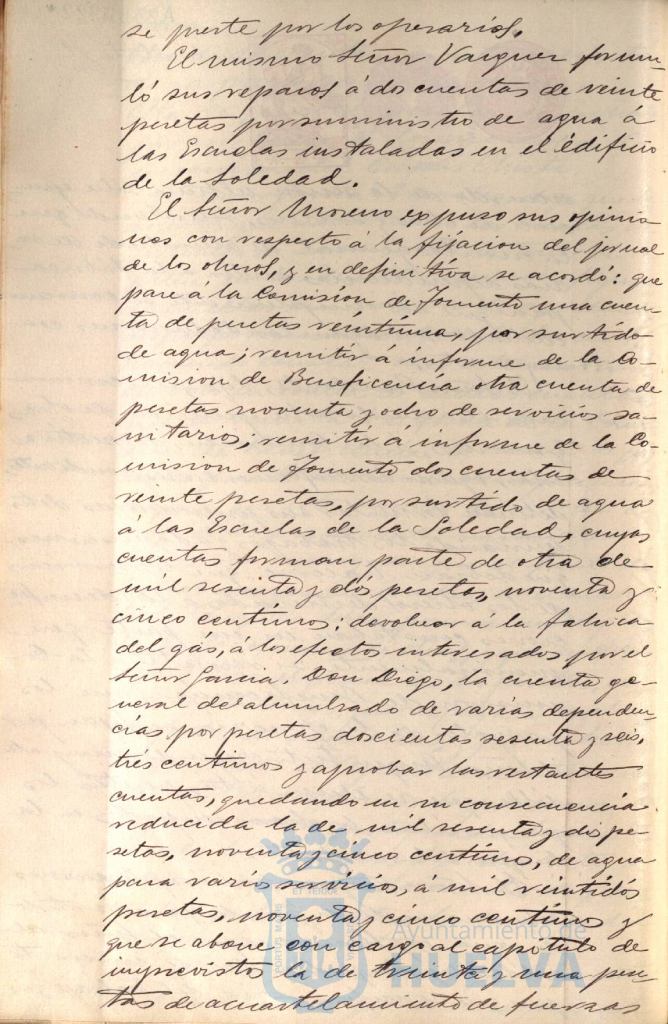 se preste por los operarios.
El mismo Señor Vazquez formu-
ló sus reparos á dos cuentas de veinte
pesetas por suministro de agua á
las Escuelas instaladas en el édificio
de la Soledad.
El Señor Moreno expuso sus opinio
nes con respecto á la fijacion del jornal
de los obreros, y en definitiva se acordó: que
pase á la Comisión de Fomento una cuen
ta de pesetas veintiuna, por surtido
de agua; remitir á informe de la Co-
mision de Beneficencia otra cuenta de
pesetas noventa y ocho de servicios sa-
nitarios; remitir á informe de la Co-
mision de Fomento dos cuentas de
veinte pesetas, por surtido de agua
á las Escuelas de la Soledad, cuyas
cuentas forman parte de otra de
mil sesenta y dos pesetas, noventa y
cinco centimos: devolver á la fabrica
del gás, á los efectos interesados por el
Señor Garcia, Don Diego, la cuenta ge-
neral del alumbrado de varias dependen-
cias por pesetas doscientas sesenta y seis,
trés centimos y aprobar las restantes
cuentas, quedando en su consecuencia
reducida la de mil sesenta y dos pe-
setas, noventa y cinco centimos, de agua
para varios servicios, á mil veintidós
pesetas, noventa y cinco centimos y
que se abone con cargo al capitulo de
imprevistos la de treinta y una pese-
tas de acuartelamiento de fuerzas
PORTUS MARIS ET TERRAE CUSTODIA
Ayuntamiento de
HUELVA